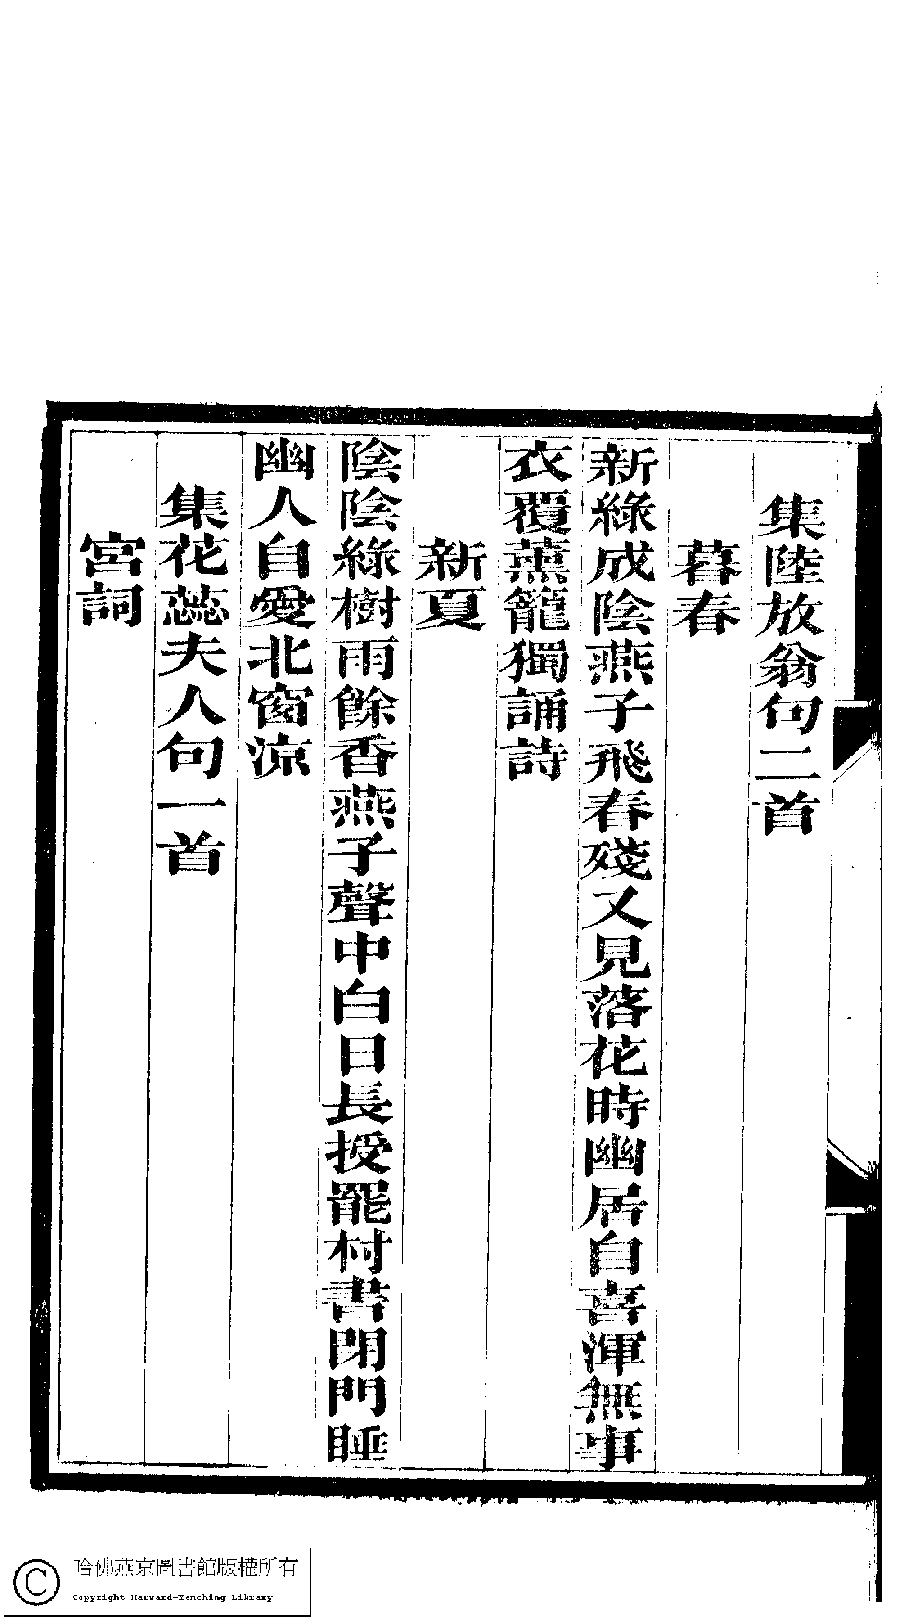 集陸放翁句二首
暮春
新綠成陰燕子飛春殘又見落花時幽居自喜渾無事
衣覆薰籠獨誦詩
新夏
陰陰綠樹雨餘香燕子聲中白日長授罷村書閉門睡
幽人自愛北窗涼
集花蕊夫人句一首
宮詞
哈佛燕京圖書館版權所有
Copyright Harvard-Yenching Library